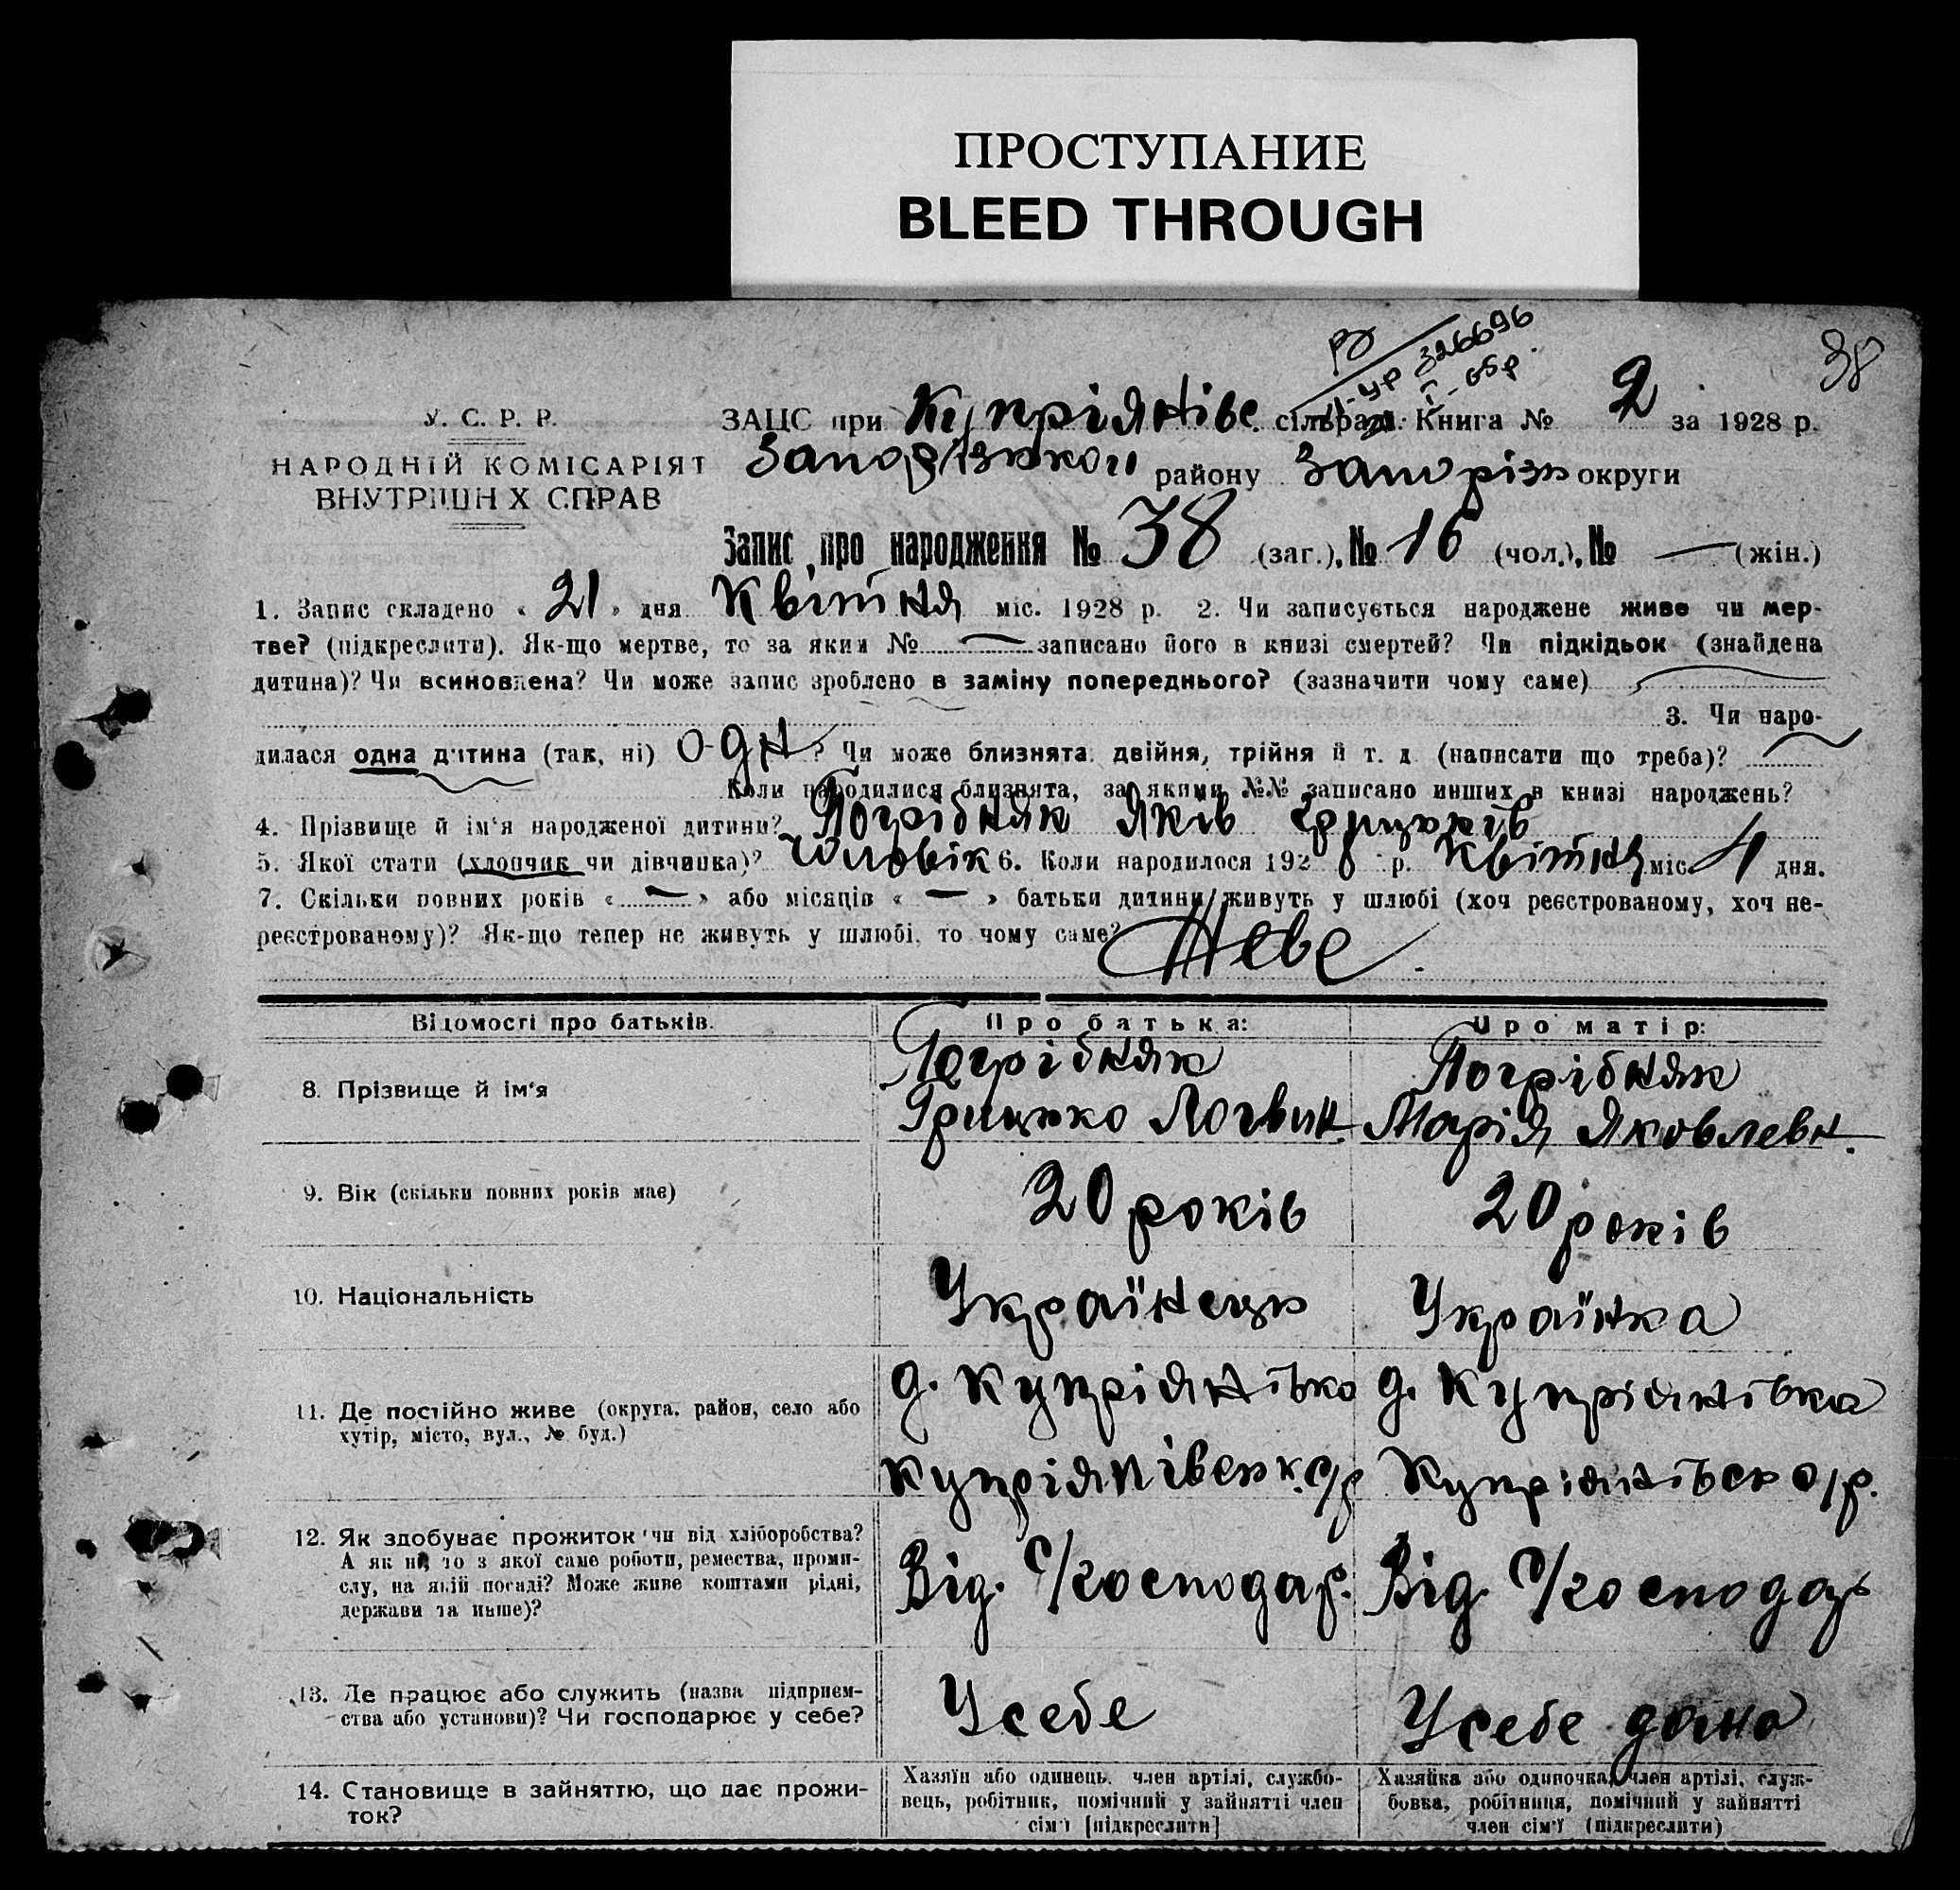 ПРОСТУПАНИЕ
BLEED THROUGH
326696
38
У. С. Р. Р.
НАРОДНІЙ КОМІСАРІЯТ
ВНУТРІШН Х СПРАВ
ЗАЦС при Купріянівс. сільраді. Книга № 2 за 1928 р.
Запорізькоп району Запорізь округи
Запис про народження № 38 (заг.), № 16 (чол.), № — (жін.)
1. Запис складено « 21 » дня Квітня міс. 1928 р. 2. Чи записується народжене живе чи мер-
тве? (підкреслити). Як-що мертве, то за яким № — записано його в книзі смертей? Чи підкідьок (знайдена
дитина)? Чи всиновлена? Чи може запис зроблено в заміну попереднього? (зазначити чому саме)
3. Чи наро-
дилася одна дитина (так, ні) одн ? Чи може близнята: двійня, трійня й т. д. (написати що треба)?
Коли народилися близнята, за якими №№ записано инших в книзі народжень?
4. Прізвище й ім'я народженої дитини? Погрібняк Яків Грицьків
5. Якої стати (хлопчик чи дівчинка)? Чоловік 6. Коли народилося 1928 р. Квітня міс. 4 дня.
7. Скільки повних років « — » або місяців « — » батьки дитини живуть у шлюбі (хоч реєстрованому, хоч не-
реєстрованому)? Як-що тепер не живуть у шлюбі, то чому саме?
Відомості про батьків.
Про батька:
Про матір:
8. Прізвище й ім'я
Погрібняк
Грицько Логвин.
Погрібняк
Марія Яковлевн.
9. Вік (скільки повних років має)
20 років
20 років
10. Національність
Українець
Українка
11. Де постійно живе (округа, район, село або
хутір, місто, вул., № буд.)
д. Купріянівка
Купріянівськ. с/р
д. Купріянівка
Купріянівськ с/р.
12. Як здобуває прожиток чи від хліборобства?
А як ні, то з якої саме роботи, ремества, проми-
слу, на якій посаді? Може живе коштами рідні,
держави та инше)?
Від. С/господар.
Від. С/господар
13. Де працює або служить (назва підприєм-
ства або установи)? Чи господарює у себе?
У себе
У себе дома
14. Становище в зайняттю, що дає прожи-
ток?
Хазяїн або одинець, член артілі, службо-
вець, робітник, помічний у зайнятті член
сім'ї [підкреслити]
Хазяйка або одиночка, член артілі, служ-
бовка, робітниця, помічний у зайнятті
член сім'ї (підкреслити)